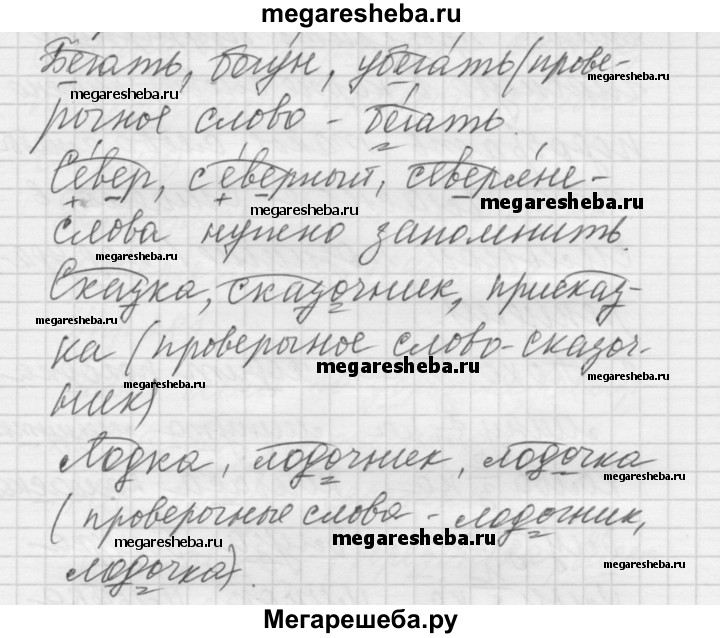 megaresheba.ru
Бегать, бегун, убегать (прове-
megaresheba.ru
megaresheba.ru
рочное слово - бегать.
Север, северный, северяне-
megaresheba.ru
megaresheba.ru
слова нужно запомнить.
megaresheba.ru
Сказка, сказочник, присказ-
megaresheba.ru
ка (проверочное слово-сказоч-
megaresheba.ru
megaresheba.ru
megaresheba.ru
ник)
Лодка, лодочник, лодочка
megaresheba.ru
(проверочные слова - лодочник,
megaresheba.ru
megaresheba.ru
лодочка).
Мегарешеба.ру